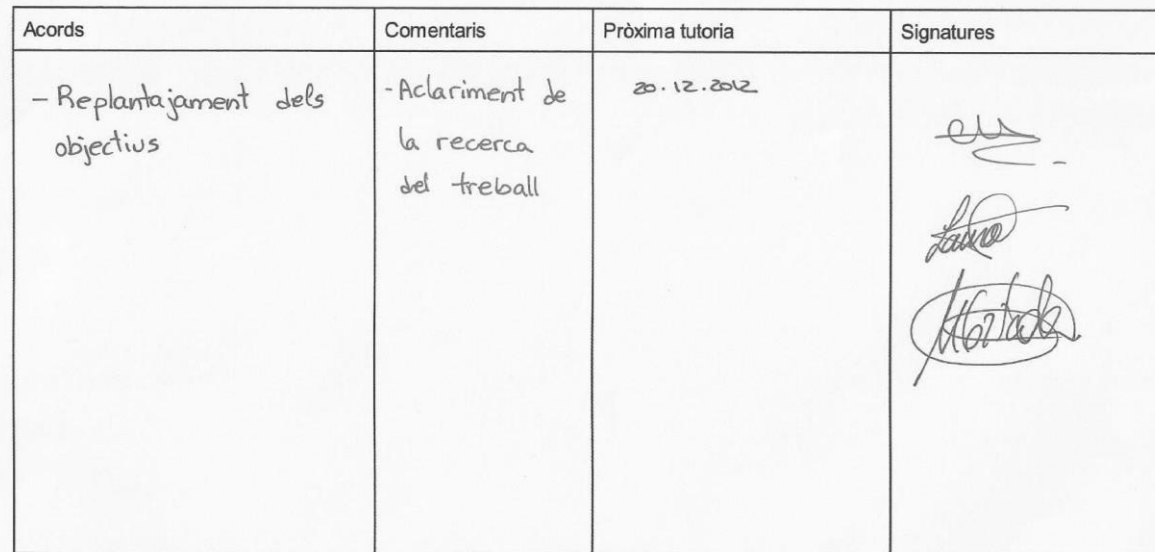 Acords
Comentaris
Pròxima tutoria
Signatures
- Replantajament dels
objectius
- Aclariment de
la recerca
del treball
20.12.2012
Laura